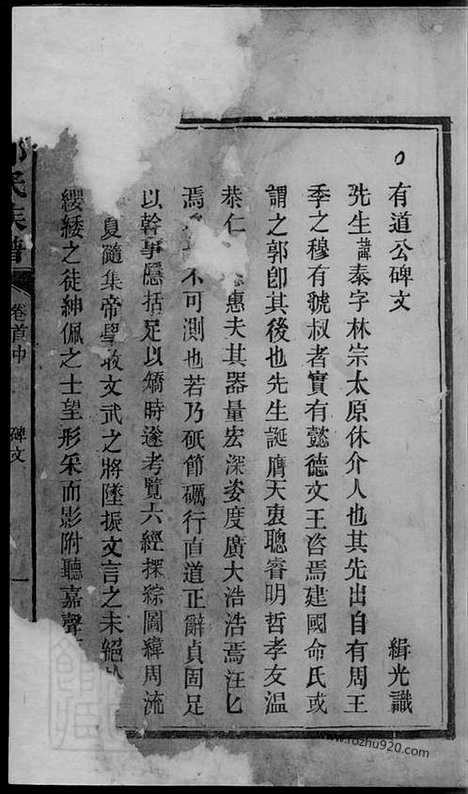 有道公碑文
緝光識
先生諱泰字林宗太原休介人也其先出自有周王
季之穆有虢叔者實有懿德文王咨焉建國命氏或
謂之郭卽其後也先生誕膺天衷聰睿明哲孝友温
恭仁惠夫其器量宏深姿度廣大浩浩焉汪匕
焉不可測也若乃砥節礪行直道正辭貞固足
以幹事隱括足以矯時遂考覽六經探綜圖緯周流
夏隨集帝學收文武之將墜振文言之未絕
纓緌之徒紳佩之士望形釆而影附聽嘉聲
氏族譜
卷首中
碑文
一
www.rozhu920.com